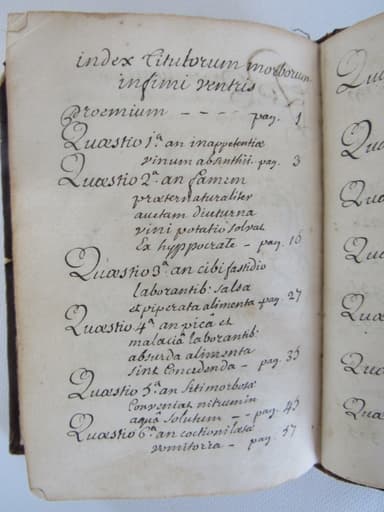 index titulorum morborum
infimi ventris
Proemium - - - - pag. 1
Quæstio 1.ª an inappetentiæ
vinum absinthii. pag. 3
Quæstio 2.ª an famem
præternaturaliter
auctam diuturna
vini potatio solvat
Ex hyppocrate - pag. 16
Quæstio 3.ª an cibi fastidio
laborantib: salsa
et piperata alimenta pag. 27
Quæstio 4.ª an picâ et
malaciâ laborantib:
absurda alimenta
sint Concedenda - pag. 35
Quæstio 5.ª an siti morbosæ
Conveniat nitrum in
aquâ solutum - - pag. 45
Quæstio 6.ª an coctioni læsæ
vomitoria - pag. 57